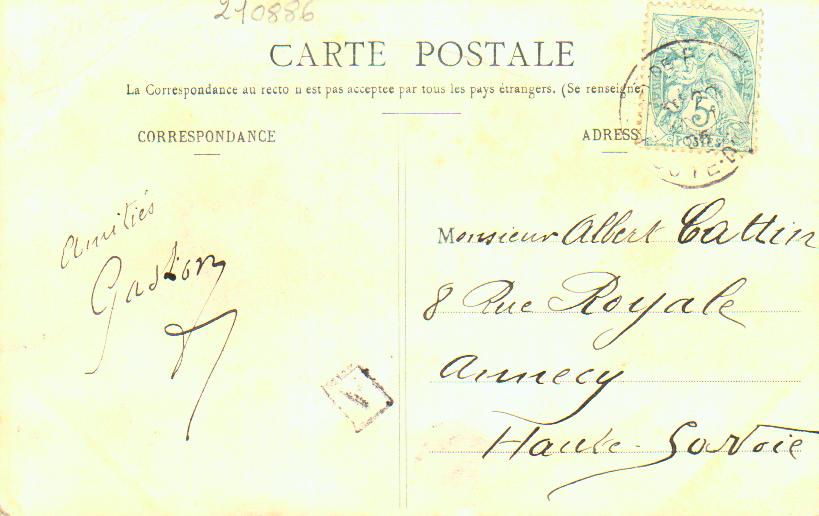 210886
CARTE POSTALE
La Correspondance au recto n est pas acceptee par tous les pays étrangers. (Se renseigne
CORRESPONDANCE
ADRESS
5
POSTES
Amitiés
Gaston
Monsieur Albert Cattin
8 Rue Royale
Annecy
Haute-Savoie
A